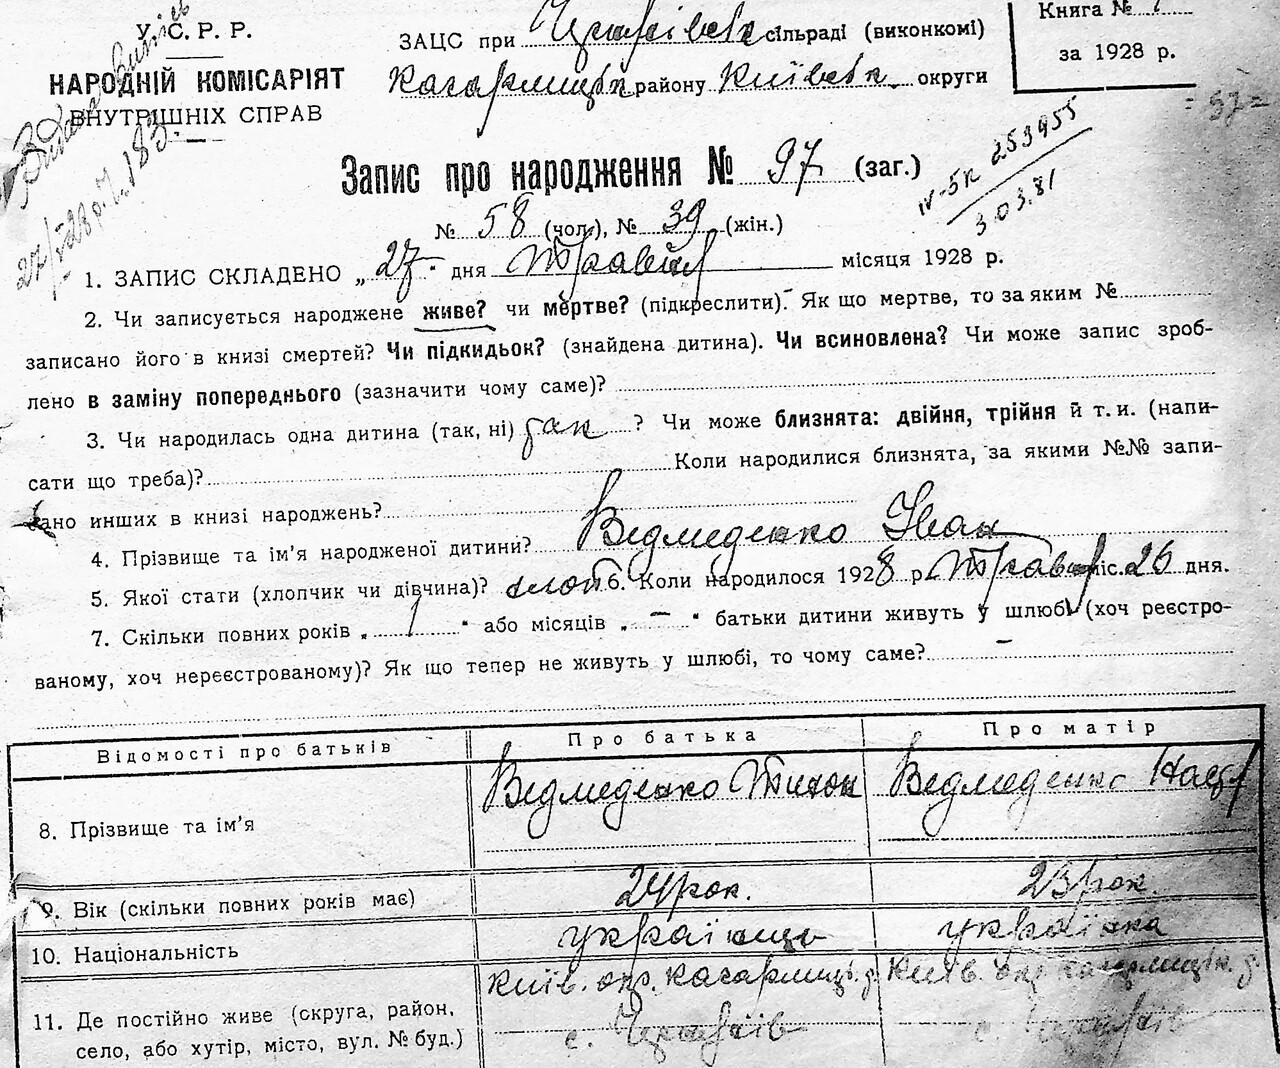 У. С. Р. Р.
НАРОДНІЙ КОМІСАРІЯТ
ВНУТРІШНІХ СПРАВ
ЗАЦС при сільраді (виконкомі)
Кагарлицьк. району Київськ. округи
Книга № 1
за 1928 р.
= 97 =
27/V-28 р. № 183
IV-БК 253955
3.03.81
Запис про народження № 97 (заг.)
№ 58 (чол.), № 39 (жін.)
1. ЗАПИС СКЛАДЕНО „ 27 " дня Травня місяця 1928 р.
2. Чи записується народжене живе? чи мертве? (підкреслити). Як що мертве, то за яким №
записано його в книзі смертей? Чи підкидьок? (знайдена дитина). Чи всиновлена? Чи може запис зроб-
лено в заміну попереднього (зазначити чому саме)?
3. Чи народилась одна дитина (так, ні) так ? Чи може близнята: двійня, трійня й т. и. (напи-
сати що треба)? Коли народилися близнята, за якими №№ запи-
сано инших в книзі народжень?
4. Прізвище та ім'я народженої дитини? Ведмеденко Іван
5. Якої стати (хлопчик чи дівчина)? хлоп 6. Коли народилося 1928 р. Травня міс. 26 дня.
7. Скільки повних років „ 1 " або місяців „ — " батьки дитини живуть у шлюбі (хоч реєстро-
ваному, хоч нереєстрованому)? Як що тепер не живуть у шлюбі, то чому саме? —
Відомості про батьків Про батька Про матір
8. Прізвище та ім'я Ведмеденко Тихон Ведмеденко
9. Вік (скільки повних років має) 24 рок. 23 рок.
10. Національність українець українка
11. Де постійно живе (округа, район, Київ. окр. Кагарлицьк. р. Київ. окр. Кагарлицьк. р.
село, або хутір, місто, вул. № буд.) с. с.